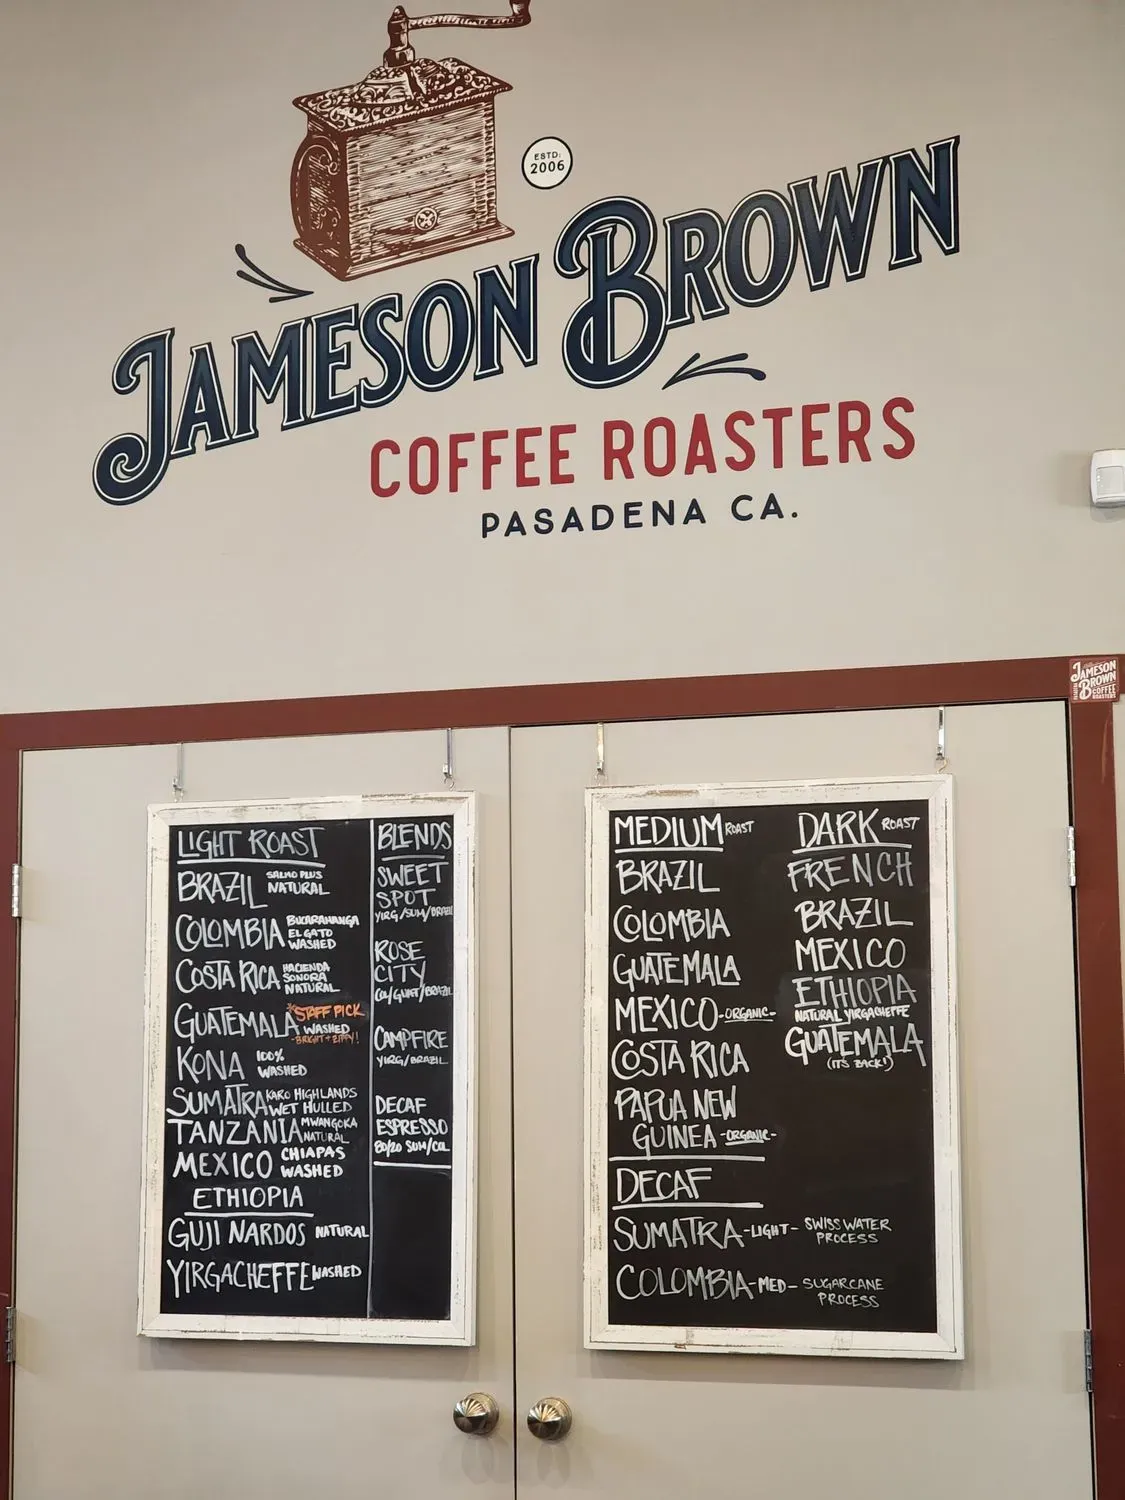 ESTD:
2006
JAMESON BROWN
COFFEE ROASTERS
PASADENA CA.
JAMESON
BROWN
COFFEE
ROASTERS
LIGHT ROAST
BRAZIL SALMO PLUS
NATURAL
COLOMBIA BUCARAMANGA
EL GATO
WASHED
COSTA RICA HACIENDA
SONORA
NATURAL
GUATEMALA *STAFF PICK
WASHED
-BRIGHT + ZIPPY!
KONA 100%
WASHED
SUMATRA KARO HIGHLANDS
WET HULLED
TANZANIA MWANGOKA
NATURAL
MEXICO CHIAPAS
WASHED
ETHIOPIA
GUJI NARDOS NATURAL
YIRGACHEFFE WASHED
BLENDS
SWEET
SPOT
YIRG/SUM/BRAZIL
ROSE
CITY
COL/GUAT/BRAZIL
CAMPFIRE
YIRG/BRAZIL
DECAF
ESPRESSO
80/20 SUM/COL
MEDIUM ROAST
BRAZIL
COLOMBIA
GUATEMALA
MEXICO -ORGANIC-
COSTA RICA
PAPUA NEW
GUINEA -ORGANIC-
DECAF
SUMATRA -LIGHT- SWISS WATER
PROCESS
COLOMBIA -MED- SUGARCANE
PROCESS
DARK ROAST
FRENCH
BRAZIL
MEXICO
ETHIOPIA
NATURAL YIRGACHEFFE
GUATEMALA
(IT'S BACK!)